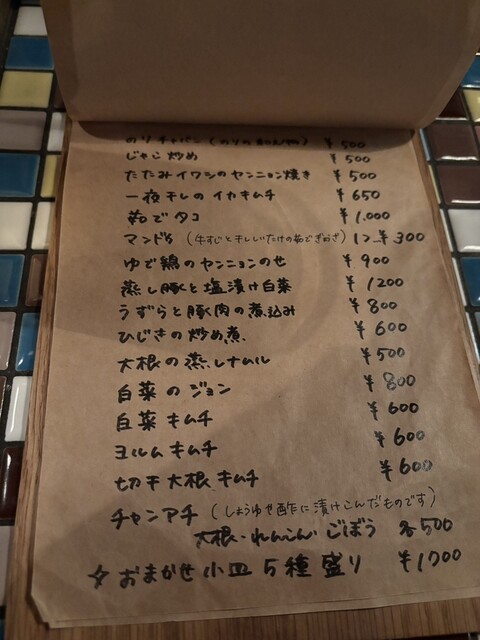 のりチャバン(のりの和え物) ¥500
じゃこ炒め ¥500
たたみイワシのヤンニョン焼き ¥500
一夜干しのイカキムチ ¥650
茹でタコ ¥1.000
マンドゥ(牛すじと干ししいたけの茹でぎょうざ) 1コ ¥300
ゆで鶏のヤンニョンのせ ¥900
蒸し豚と塩漬け白菜 ¥1200
うずらと豚肉の煮込み ¥800
ひじきの炒め煮. ¥600
大根の蒸しナムル ¥500
白菜のジョン ¥800
白菜キムチ ¥600
ヨルムキムチ ¥600
切干大根キムチ ¥600
チャンアチ(しょうゆや酢に漬けこんだものです)
大根・れんこん ごぼう 各500
☆おまかせ小皿5種盛り ¥1700